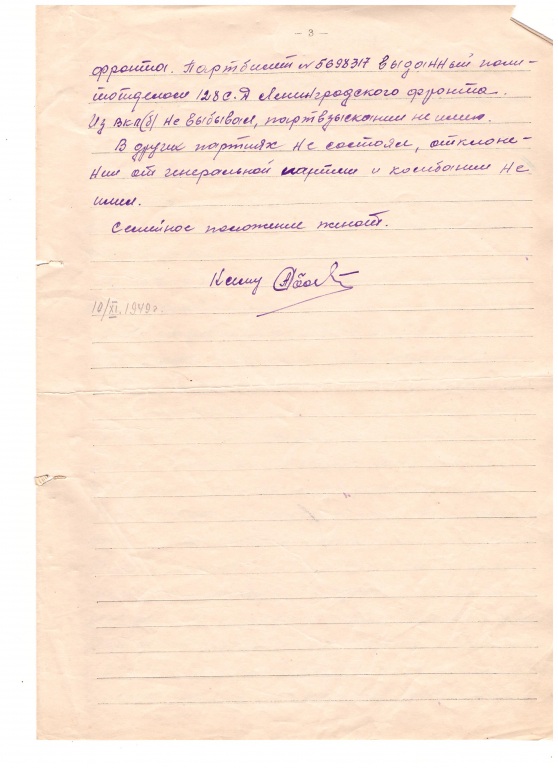 – 3 –
фронта. Партбилет №5698317 выданный поли-
тотделом 128 с.д Ленинградского фронта.
Из вкп(б) не выбывал, партвзыскании не имею.
В других партиях не состоял, отклоне-
нии от генеральной партии и колебании не
имел.
Семейное положение женат.
10/XI.1949г.